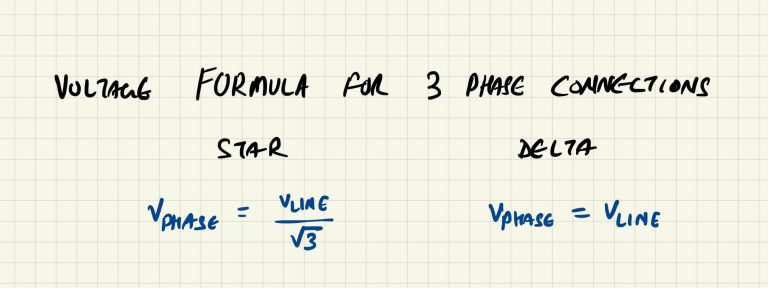 VOLTAGE FORMULA FOR 3 PHASE CONNECTIONS
STAR DELTA
V_PHASE = V_LINE / √3 V_PHASE = V_LINE